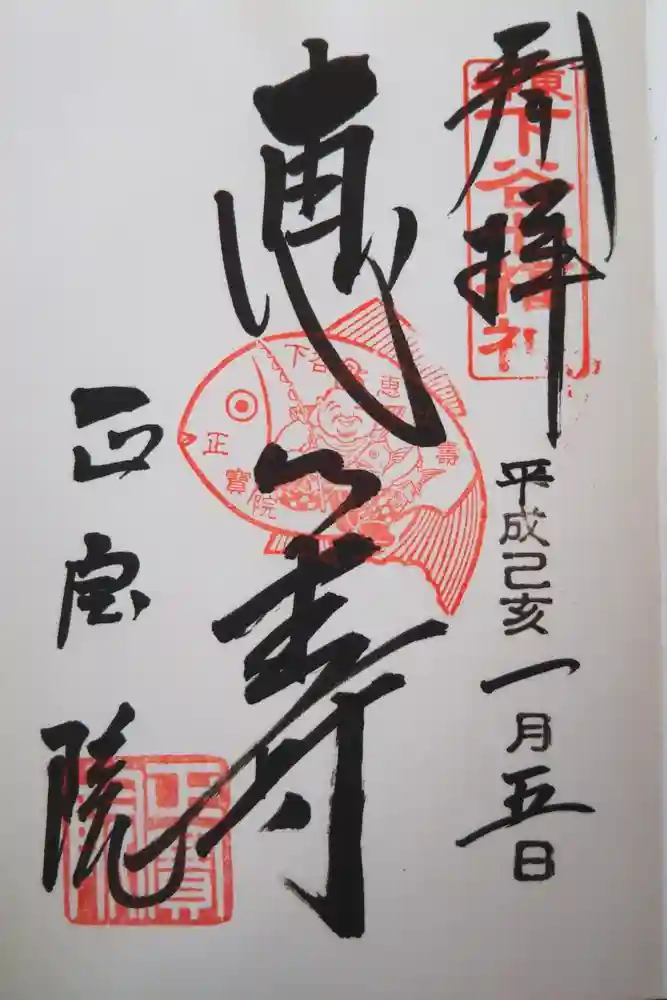 奉拝
下谷七福神
平成己亥一月五日
恵比寿
下谷
恵
壽
正寶院
正宝院
正寶院